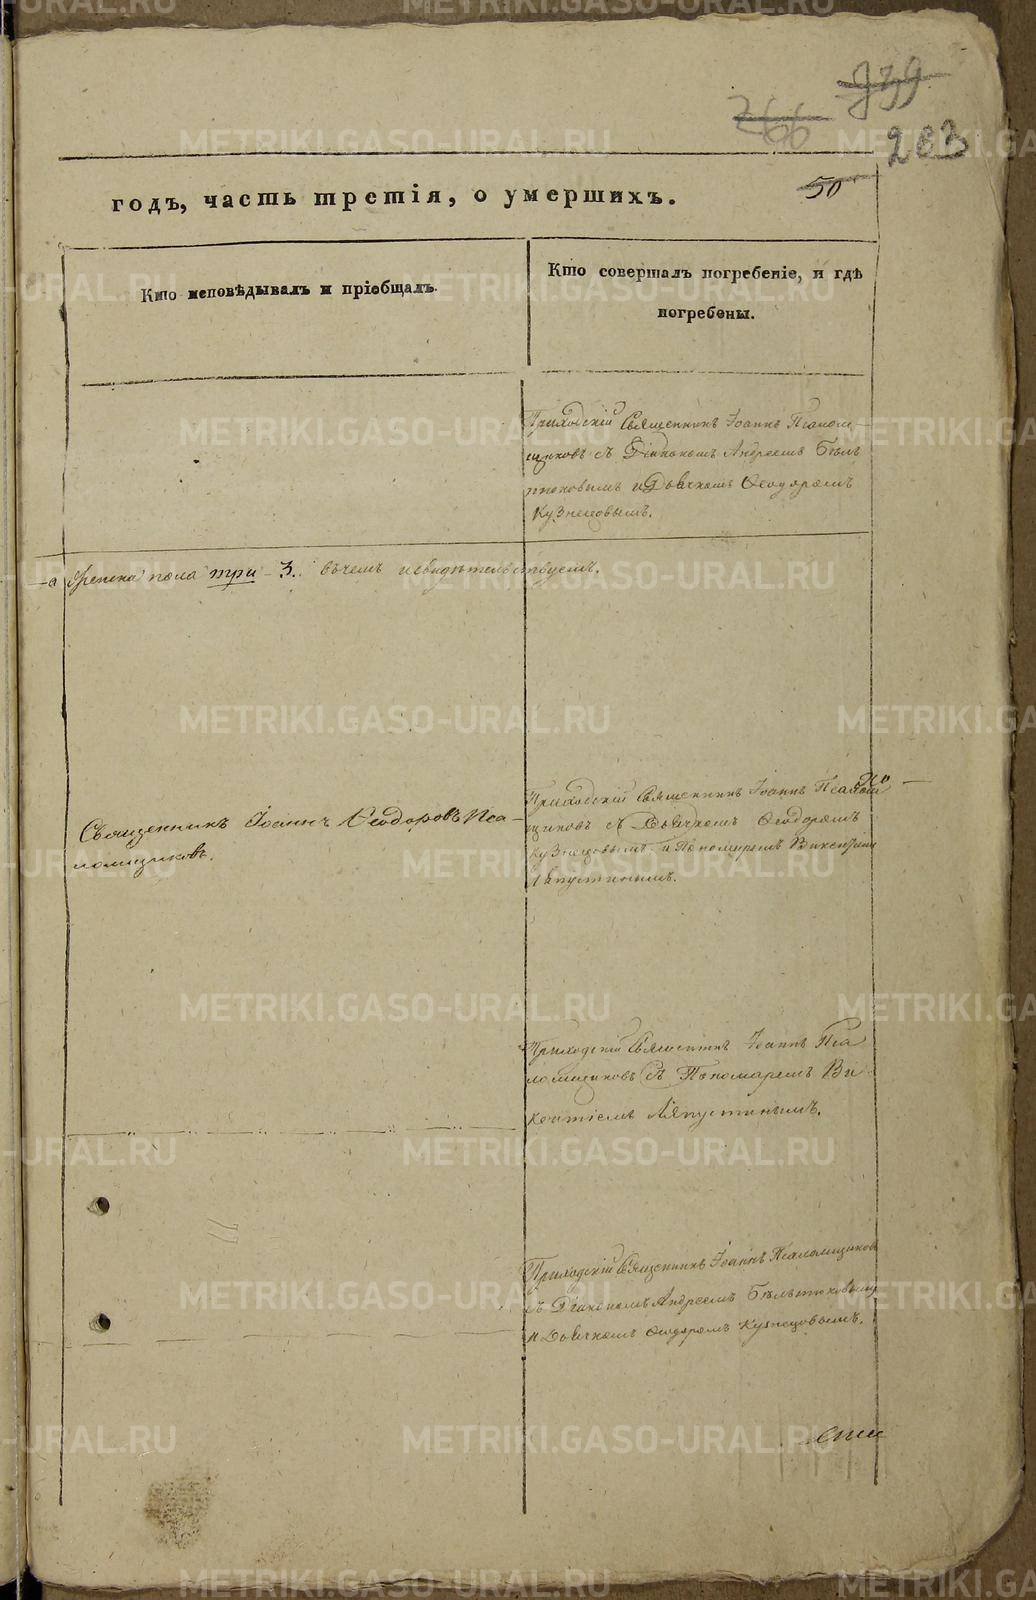 739
766
203
50
годъ, часть третія, о умершихъ.
Кто исповѣдывалъ и пріобщалъ.
Кто совершалъ погребеніе, и гдѣ
погребены.
Приходскій Священникъ Іоаннъ Псалом-
щиковъ съ Діакономъ Андреемъ Бѣль
тюковымъ и Дьячкомъ Ѳеодоромъ
Кузнецовымъ.
а женска пола три - 3. въ чемъ и свидѣтельствуемъ.
Священникъ Іоаннъ Ѳеодоровъ Пса-
ломщиковъ.
Приходскій Священникъ Іоаннъ Псалом
щиковъ съ Дьячкомъ Ѳеодоромъ
Кузнецовымъ и Пономаремъ Викентіем
Ляпустинымъ.
Приходскій Священникъ Іоаннъ Пса
ломщиковъ съ Пономаремъ Ви
кентіемъ Ляпустинымъ.
Приходскій Священникъ Іоаннъ Псаломщиковъ
съ Діакономъ Андреемъ Бѣльтюковымъ
и Дьячкомъ Ѳеодоромъ Кузнецовымъ.
METRIKI.GASO-URAL.RU